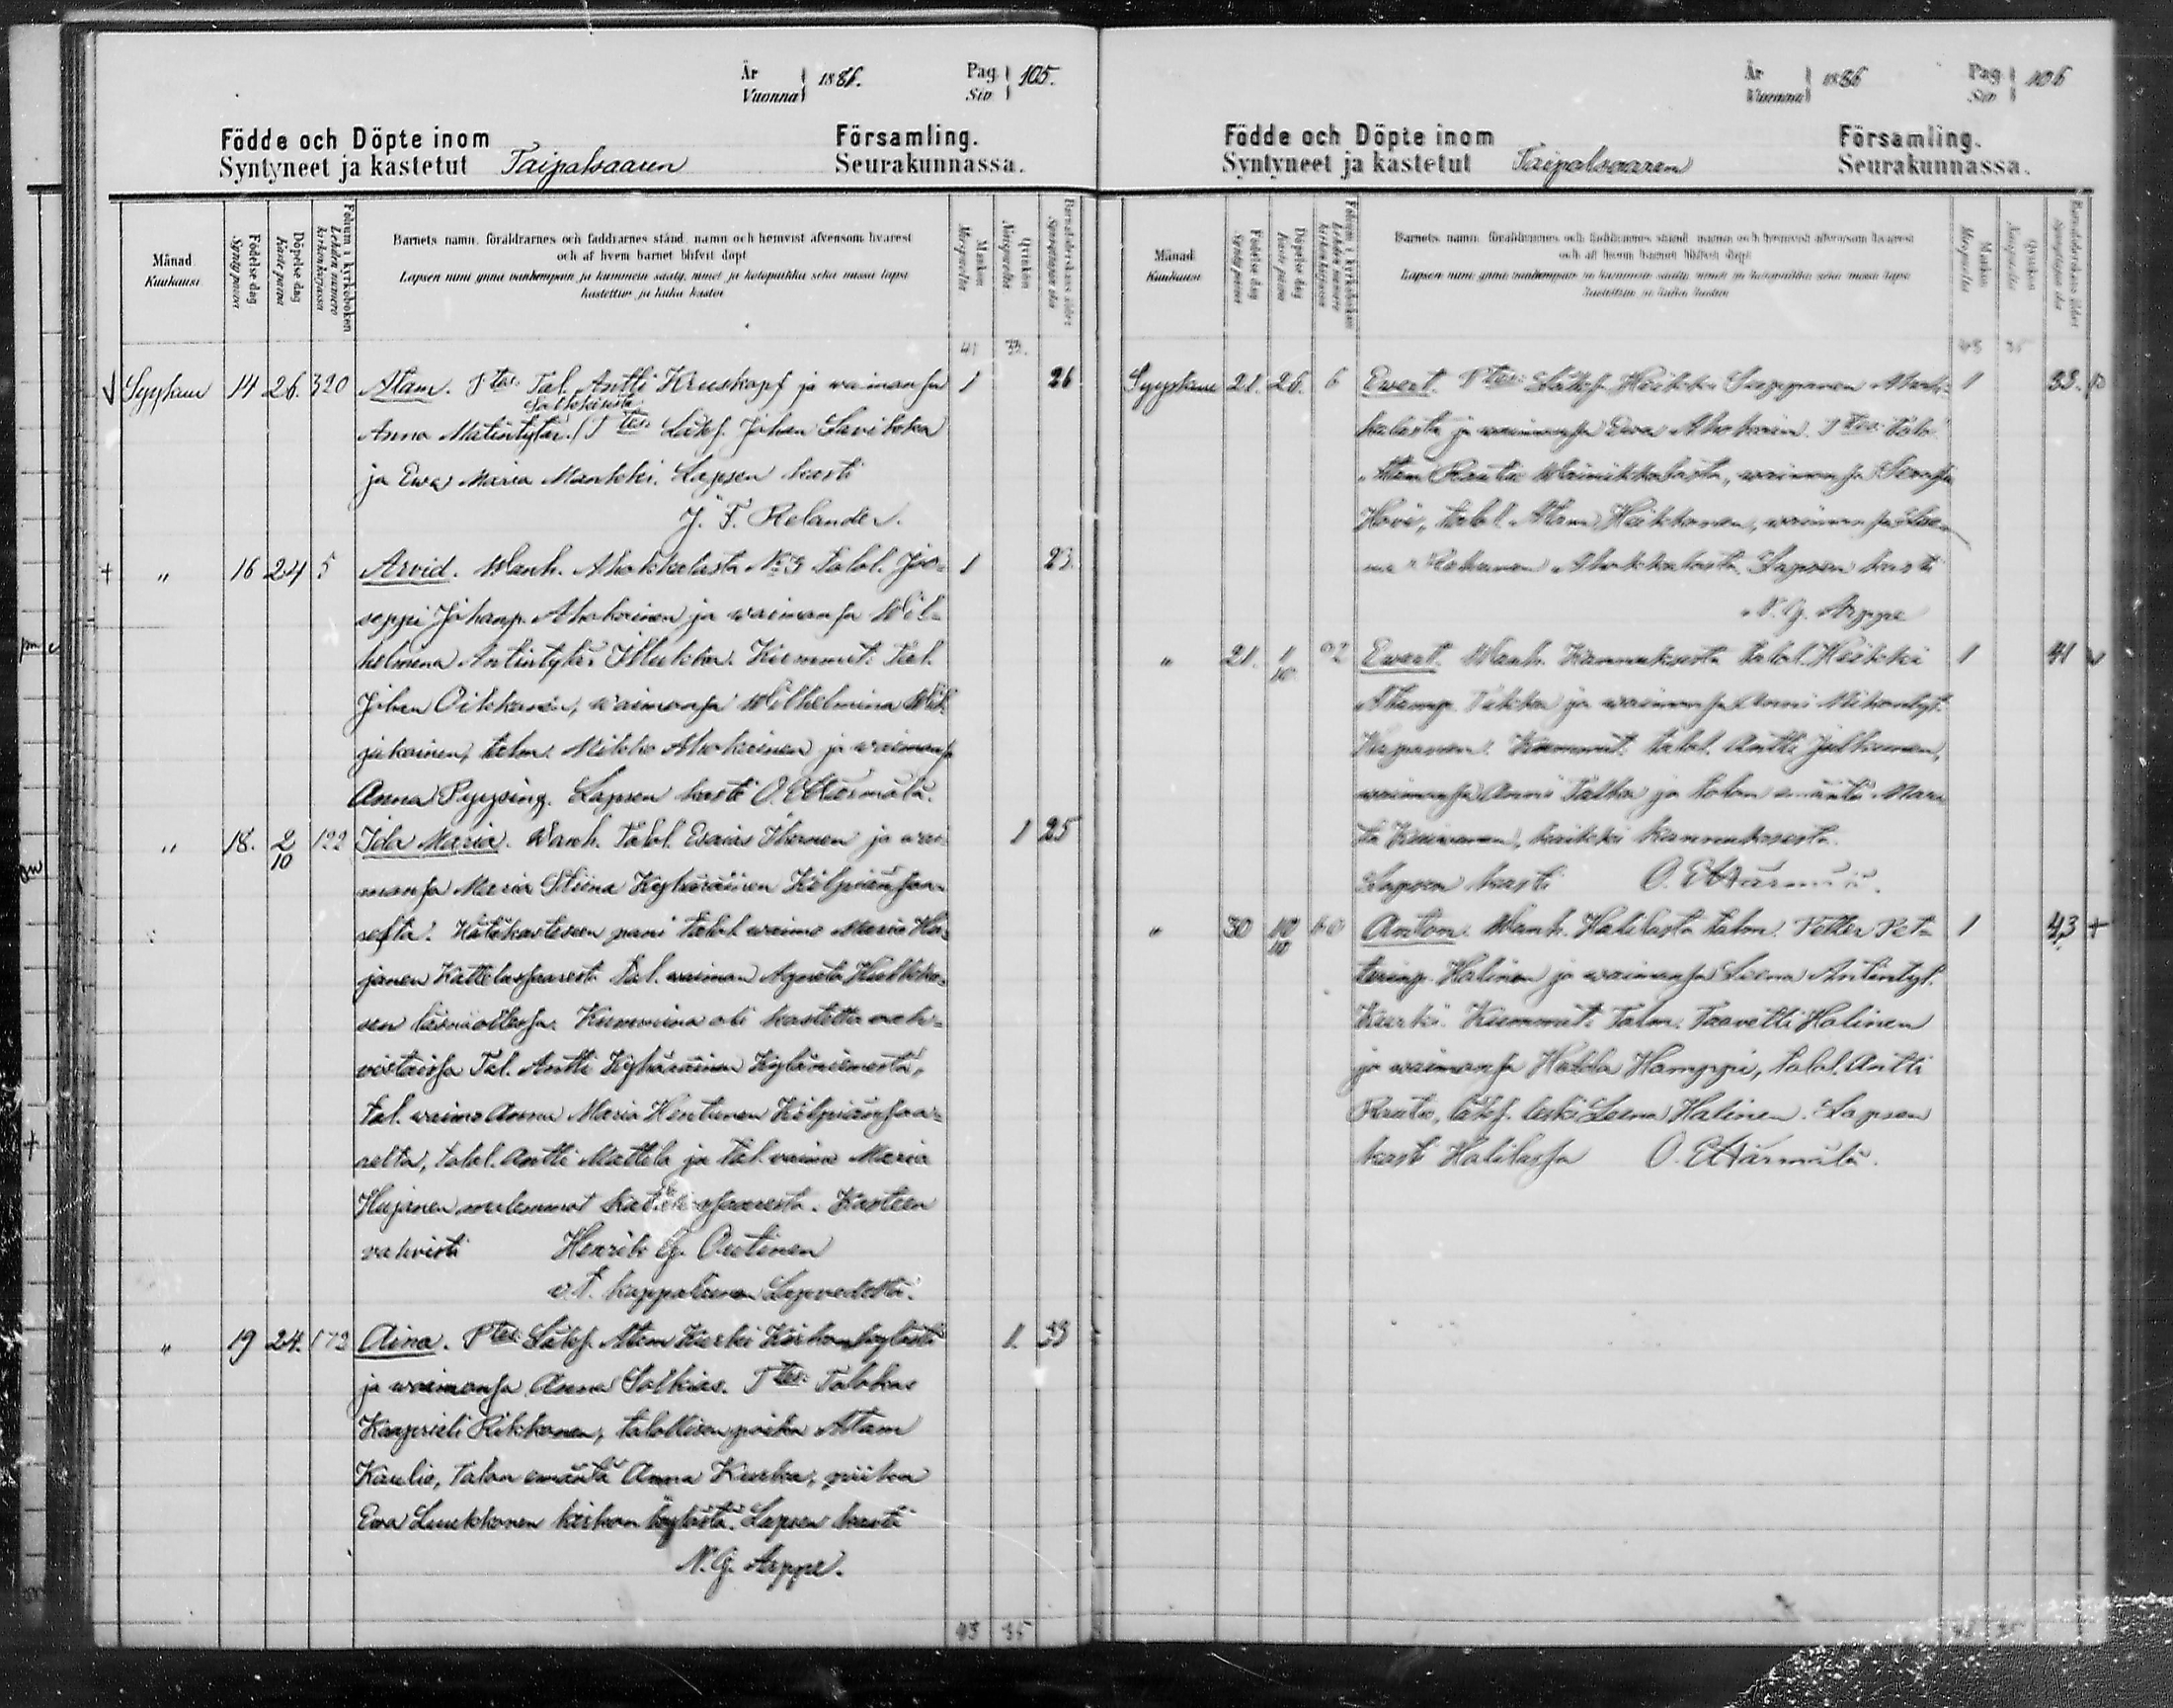 År
Vuonna 1886.
Pag.
Siv. 105.
Födde och Döpte inom
Syntyneet ja kastetut Taipalsaaren
Församling.
Seurakunnassa.
Månad
Kuukausi
Födelse dag
Synty päivä
Döpelse dag
Kaste päivä
Folium i kyrkoboken
Lehden numero kirkonkirjassa
Barnets namn, föräldrarnes och faddrarnes stånd, namn och hemvist äfvensom hvarest
och af hvem barnet blifvit döpt
Lapsen nimi ynnä vanhempain ja kummein sääty, nimet ja kotopaikka sekä missä lapsi
kastettiin ja kuka kastoi
Mankön
Miespuolia
Qvinkön
Naispuolia
Barnaföderskans ålder
Synnyttäjän ikä
41 33.
Syyskuu 14 26. 320 Atam. Ptes Tal. Antti Kruskopf ja waimonsa 1 26
Solkikisista
Anna Matintytär. / Ttes Lütsf. Johan Savikka
ja Ewa Maria Mankki. Lapsen kasti
J. F. Relander.
+ " 16 24 5 Arvid. Wanh. Ahokkalasta No 3 Talol. Joo- 1 23.
seppi Johanp. Ahokainen ja waimonsa Wil-
helmina Antintytär Ilukka. Kummit: Tal.
Johan Oikkonen, waimonsa Wilhelmina
kainen, talm. Mikko Ahokainen ja waimonsa
Anna Pyysing. Lapsen kasti O. E. Härmälä.
" 18. 2/10 122 Ida Maria. Wanh. Talol. Esaias Ihanen ja wai- 1 25
monsa Maria Stiina Kyhäräinen Kilpiänsaa-
resta. Hätäkasteseen pani talol. waimo Maria Hu-
janen Kattelussaaresta Tal. waimon Agneta
sen läsnäollessa. Kummina oli kastetta vah-
vistaissa Tal. Antti Kyhäräinen Kyläniemestä,
Tal. waimo Anna Maria Hentunen Kilpiänsaa-
relta, talol. Antti Mattila ja tal. waimo Maria
Hujanen molemmat Kattelussaaresta. Kasteen
vahvisti Henrik G. Autinen
v.t. kappalainen Lapvedeltä.
" 19 24. 172 Aina. Ptes Lütsf. Atam Kurki Kirkonkylästä 1. 33
ja waimonsa Anna Solkias. Ttes Talokas
Kaaprieli Rikkonen, talollisen poika Atam
Kaulio, Talon emäntä Anna Kurka, piika
Ewa Luukkonen kirkonkylästä. Lapsen kasti
N. G. Arppe.
43 35
År
Vuonna 1886
Pag.
Siv. 106
Födde och Döpte inom
Syntyneet ja kastetut Taipalsaaren
Församling.
Seurakunnassa.
Månad
Kuukausi
Födelse dag
Synty päivä
Döpelse dag
Kaste päivä
Folium i kyrkoboken
Lehden numero kirkonkirjassa
Barnets namn, föräldrarnes och faddrarnes stånd, namn och hemvist äfvensom hvarest
och af hvem barnet blifvit döpt
Lapsen nimi ynnä vanhempain ja kummein sääty, nimet ja kotopaikka sekä missä lapsi
kastettiin ja kuka kastoi
Mankön
Miespuolia
Qvinkön
Naispuolia
Barnaföderskans ålder
Synnyttäjän ikä
43 35
Syyskuu 21. 26. 6 Ewert. Ptes Lütsf. Heikki Sappanen Ahok- 1 33.
kalasta ja waimonsa Ewa Ahokainen. Ttes talo
Atam Rautio Wainikkalasta, waimonsa
Hovi, talol. Atam Heikkonen, waimonsa
Ahokkalasta. Lapsen kasti
N. G. Arppe
" 21. 1/10 92 Ewert. Wanh. Kannuksesta talol. Heikki 1 41
Atamp. Tukka ja waimonsa Anni Mikontyt.
Kaparen. Kummit: talol. Antti Julkunen,
waimonsa Anni Talka ja talon emäntä Maria
kaikki Kannuksesta.
Lapsen kasti O. E. Härmälä.
" 30 10/10 60 Anton. Wanh. Halilasta talm. Petter Pet- 1 43 +
terinp. Halinen ja waimonsa Leena Antintyt.
Kurki. Kummit: Talm. Taavetti Halinen
ja waimonsa Hedda Hamppi, talol. Antti
Rautio, lütsf. leski Leena Halinen. Lapsen
kasti Halilassa O. E. Härmälä.